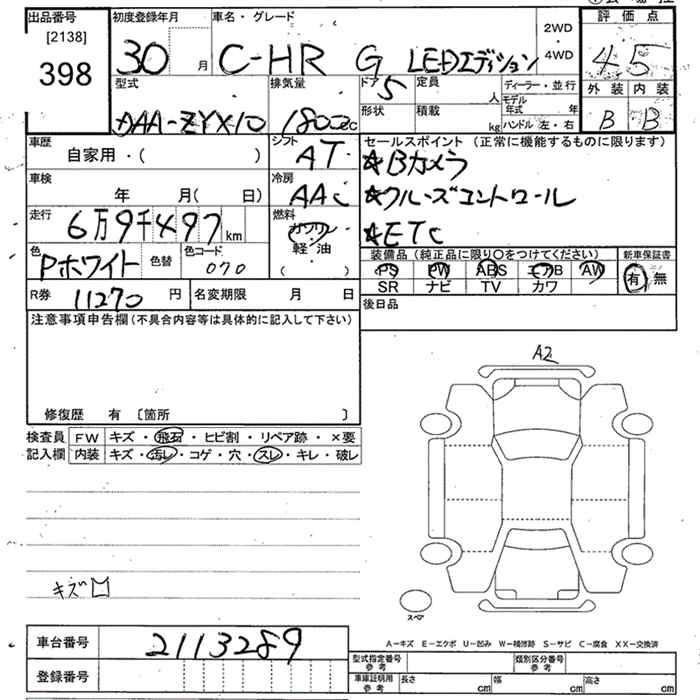 出品番号
[2138]
398
初度登録年月
30 月
車名・グレード
C-HR G LEDエディション
2WD
・
4WD
評価点
4.5
外装 内装
B B
型式
DAA-ZYX10
排気量
1800cc
ドア
5
定員
人
ディーラー・並行
モデル年式 年
形状
積載
kg
ハンドル 左・右
車歴
自家用・( )
シフト
AT
車検
年 月( 日)
冷房
AAC
走行
6万9千497km
燃料
ガソリン
軽・油
( )
色
Pホワイト
色替
色コード
070
R券 11270 円
名変期限 月 日
セールスポイント(正常に機能するものに限ります)
☆Bカメラ
☆クルーズコントロール
☆ETC
装備品(純正品に限り○をつけてください)
新車保証書
PS PW ABS エアB AW
SR ナビ TV カワ
有 無
後日品
注意事項申告欄(不具合内容等は具体的に記入して下さい)
修復歴 有 〔箇所 〕
検査員
記入欄
FW キズ・飛石・ヒビ割・リペア跡・×要
内装 キズ・汚レ・コゲ・穴・スレ・キレ・破レ
A2
キズ
スペア
車台番号 2113289
登録番号
A-キズ E-エクボ U-凹み W-補修跡 S-サビ C-腐食 XX-交換済
型式指定番号
参考
類別区分番号
参考
車庫証明用
参考
長さ cm 幅 cm 高さ cm